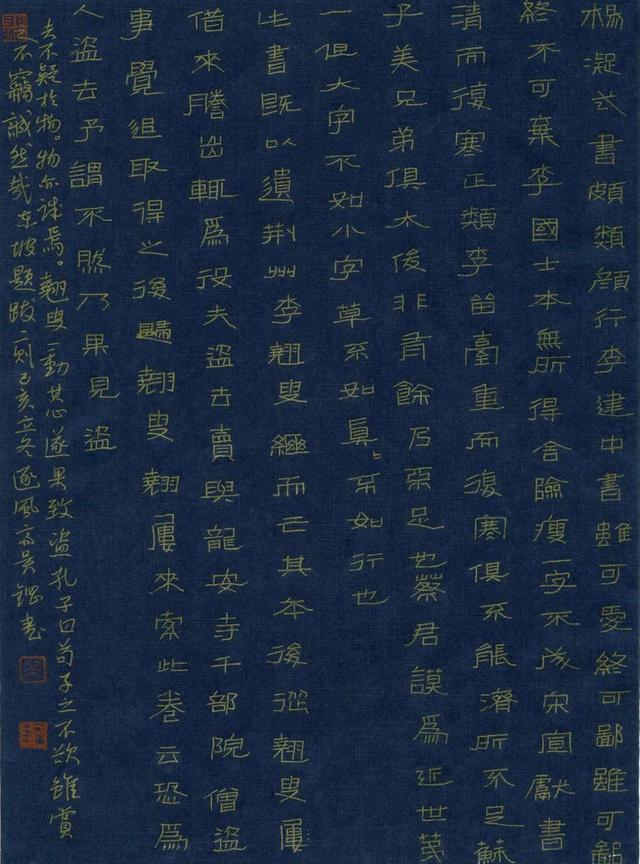 楊凝式書頗類顏行李建中書雖可愛終可鄙雖可鄙
終不可棄李國士本無所得舍險瘦一字不成宋宣獻書
清而復寒正類李留臺重而復寒俱不能濟所不足蘇
子美兄弟俱太俊非有餘乃不足也蔡君謨為近世第
一但大字不如小字草不如真真不如行也
此書既以遺荊州李翹叟繼而亡其本後從翹叟屢
借來謄出輒為役夫盜去賣與龍安寺千部院僧盜
事覺追取得之後歸翹叟翹屢來索此卷云恐為
人盜去予謂不然乃果見盜
夫不疑於物物亦誠焉翹叟一動其心遂果致盜孔子曰苟子之不欲雖賞
之不竊誠然哉東坡題跋二則己亥立冬逐風高吳鋼書